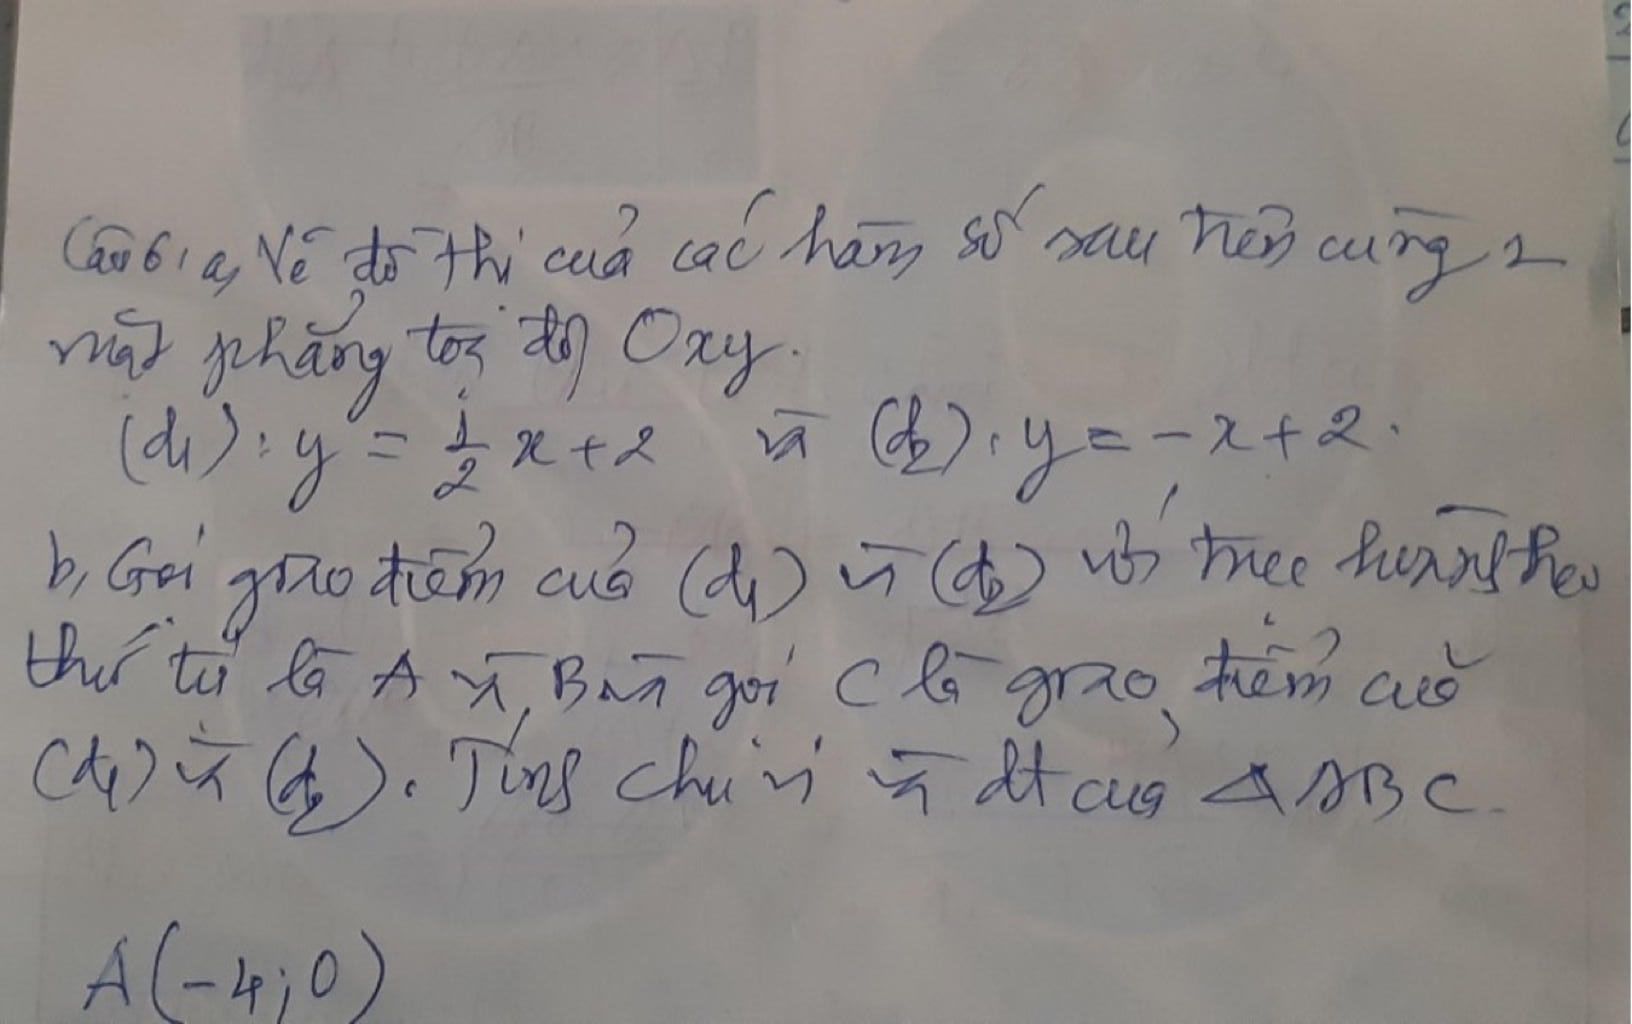 Câu 6: a, Vẽ đồ thị của các hàm số sau trên cùng 1
mặt phẳng toạ độ Oxy.
(d1): y = 1/2 x + 2 và (d2): y = -x + 2.
b, Gọi giao điểm của (d1) và (d2) với trục hoành theo
thứ tự là A và B và gọi C là giao điểm của
(d1) và (d2). Tính chu vi và dt của △ ABC.
A(-4; 0)